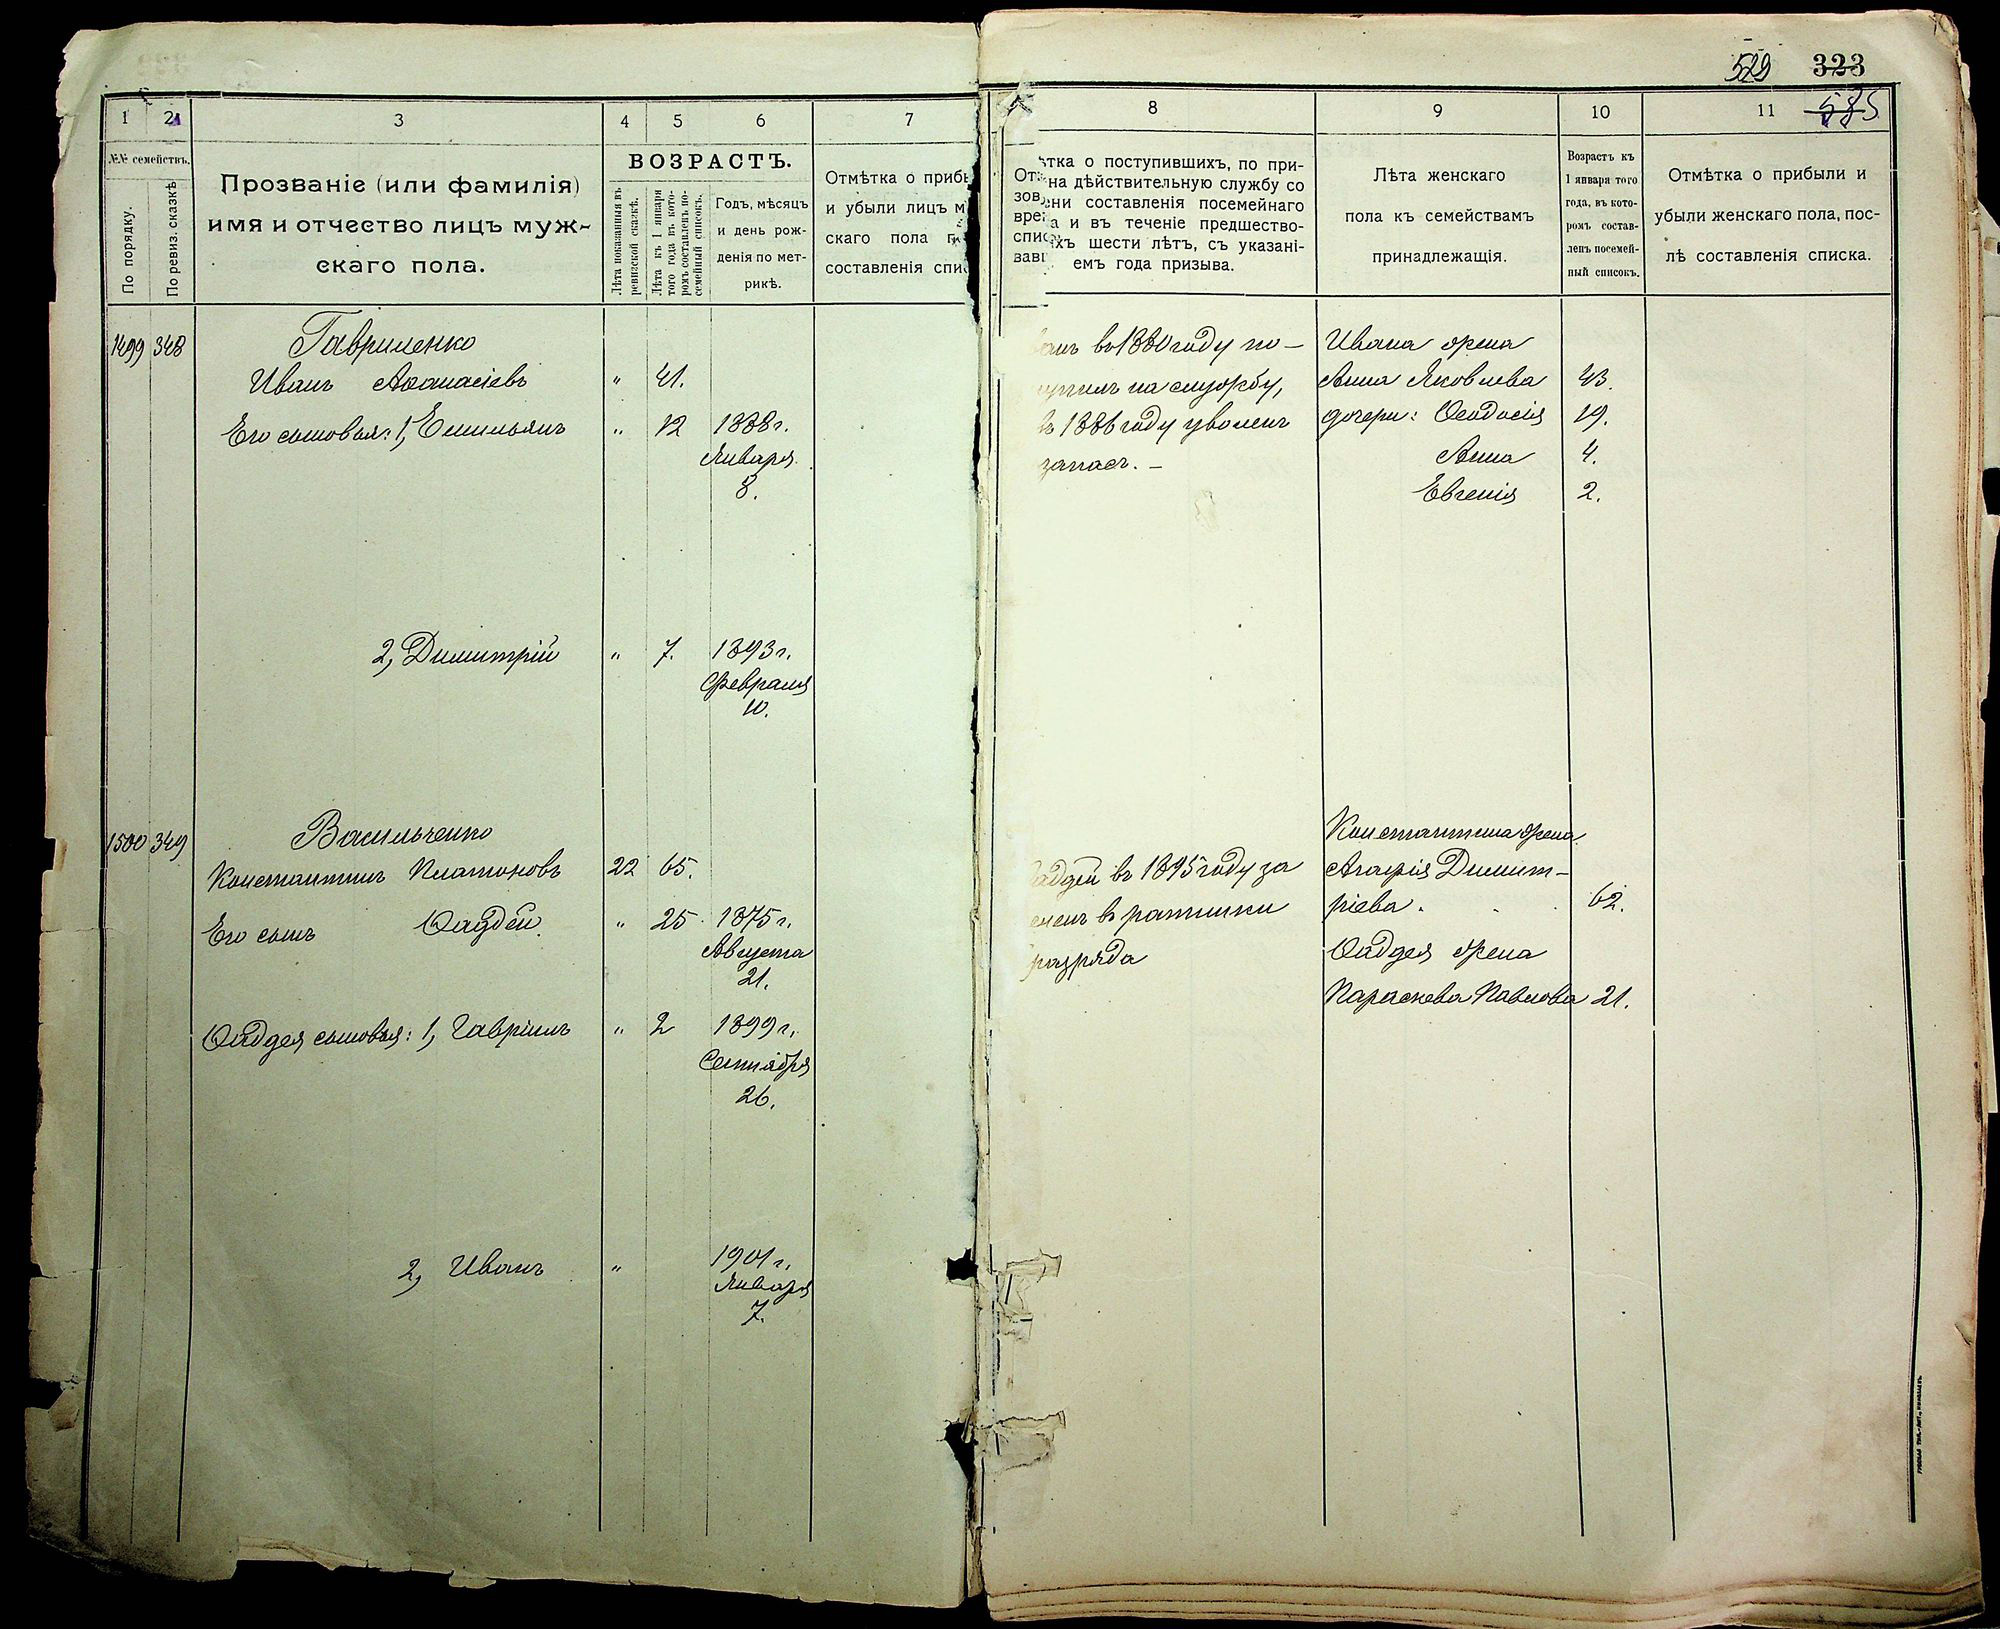 529 323
585
1 2 3 4 5 6 7
№№ семействъ.
По порядку.
По ревиз. сказкѣ
Прозваніе (или фамилія)
имя и отчество лицъ муж-
скаго пола.
ВОЗРАСТЪ.
Лѣта показанныя въ
ревизской сказкѣ.
Лѣта къ 1 января
того года въ кото-
ромъ составленъ по-
семейный списокъ.
Годъ, мѣсяцъ
и день рож-
денія по мет-
рикѣ.
Отмѣтка о прибы
и убыли лицъ м
скаго пола п
составленія спис
1499 348 Гавриленко
Иванъ Аѳанасіевъ " 41.
Его сыновья: 1, Емильянъ " 12 1888 г.
Января
8.
2, Димитрій " 7. 1893 г.
Февраля
10.
1500 349 Васильченко
Константинъ Платоновъ 22 65.
Его сынъ Ѳаддей " 25 1875 г.
Августа
21.
Ѳаддея сыновья: 1, Гавріилъ " 2 1899 г.
Сентября
26.
2, Иванъ " 1901 г.
Января
7.
8 9 10 11
От тка о поступившихъ, по при-
зов на дѣйствительную службу со
вре ени составленія посемейнаго
спис а и въ теченіе предшество-
вавш ихъ шести лѣтъ, съ указані-
емъ года призыва.
Лѣта женскаго
пола къ семействамъ
принадлежащія.
Возрастъ къ
1 января того
года, въ кото-
ромъ состав-
ленъ посемей-
ный списокъ.
Отмѣтка о прибыли и
убыли женскаго пола, пос-
лѣ составленія списка.
ванъ въ 1880 году по- Ивана жена
упилъ на службу, Анна Яковлева 43.
въ 1886 году уволенъ дочери: Ѳеодосія 19.
запасъ. - Анна 4.
Евгенія 2.
Константина жена
аддей въ 1895 году за Агафія Димит-
сленъ въ ратники ріева . . . 62.
разряда Ѳаддея жена
Параскева Павлова 21.